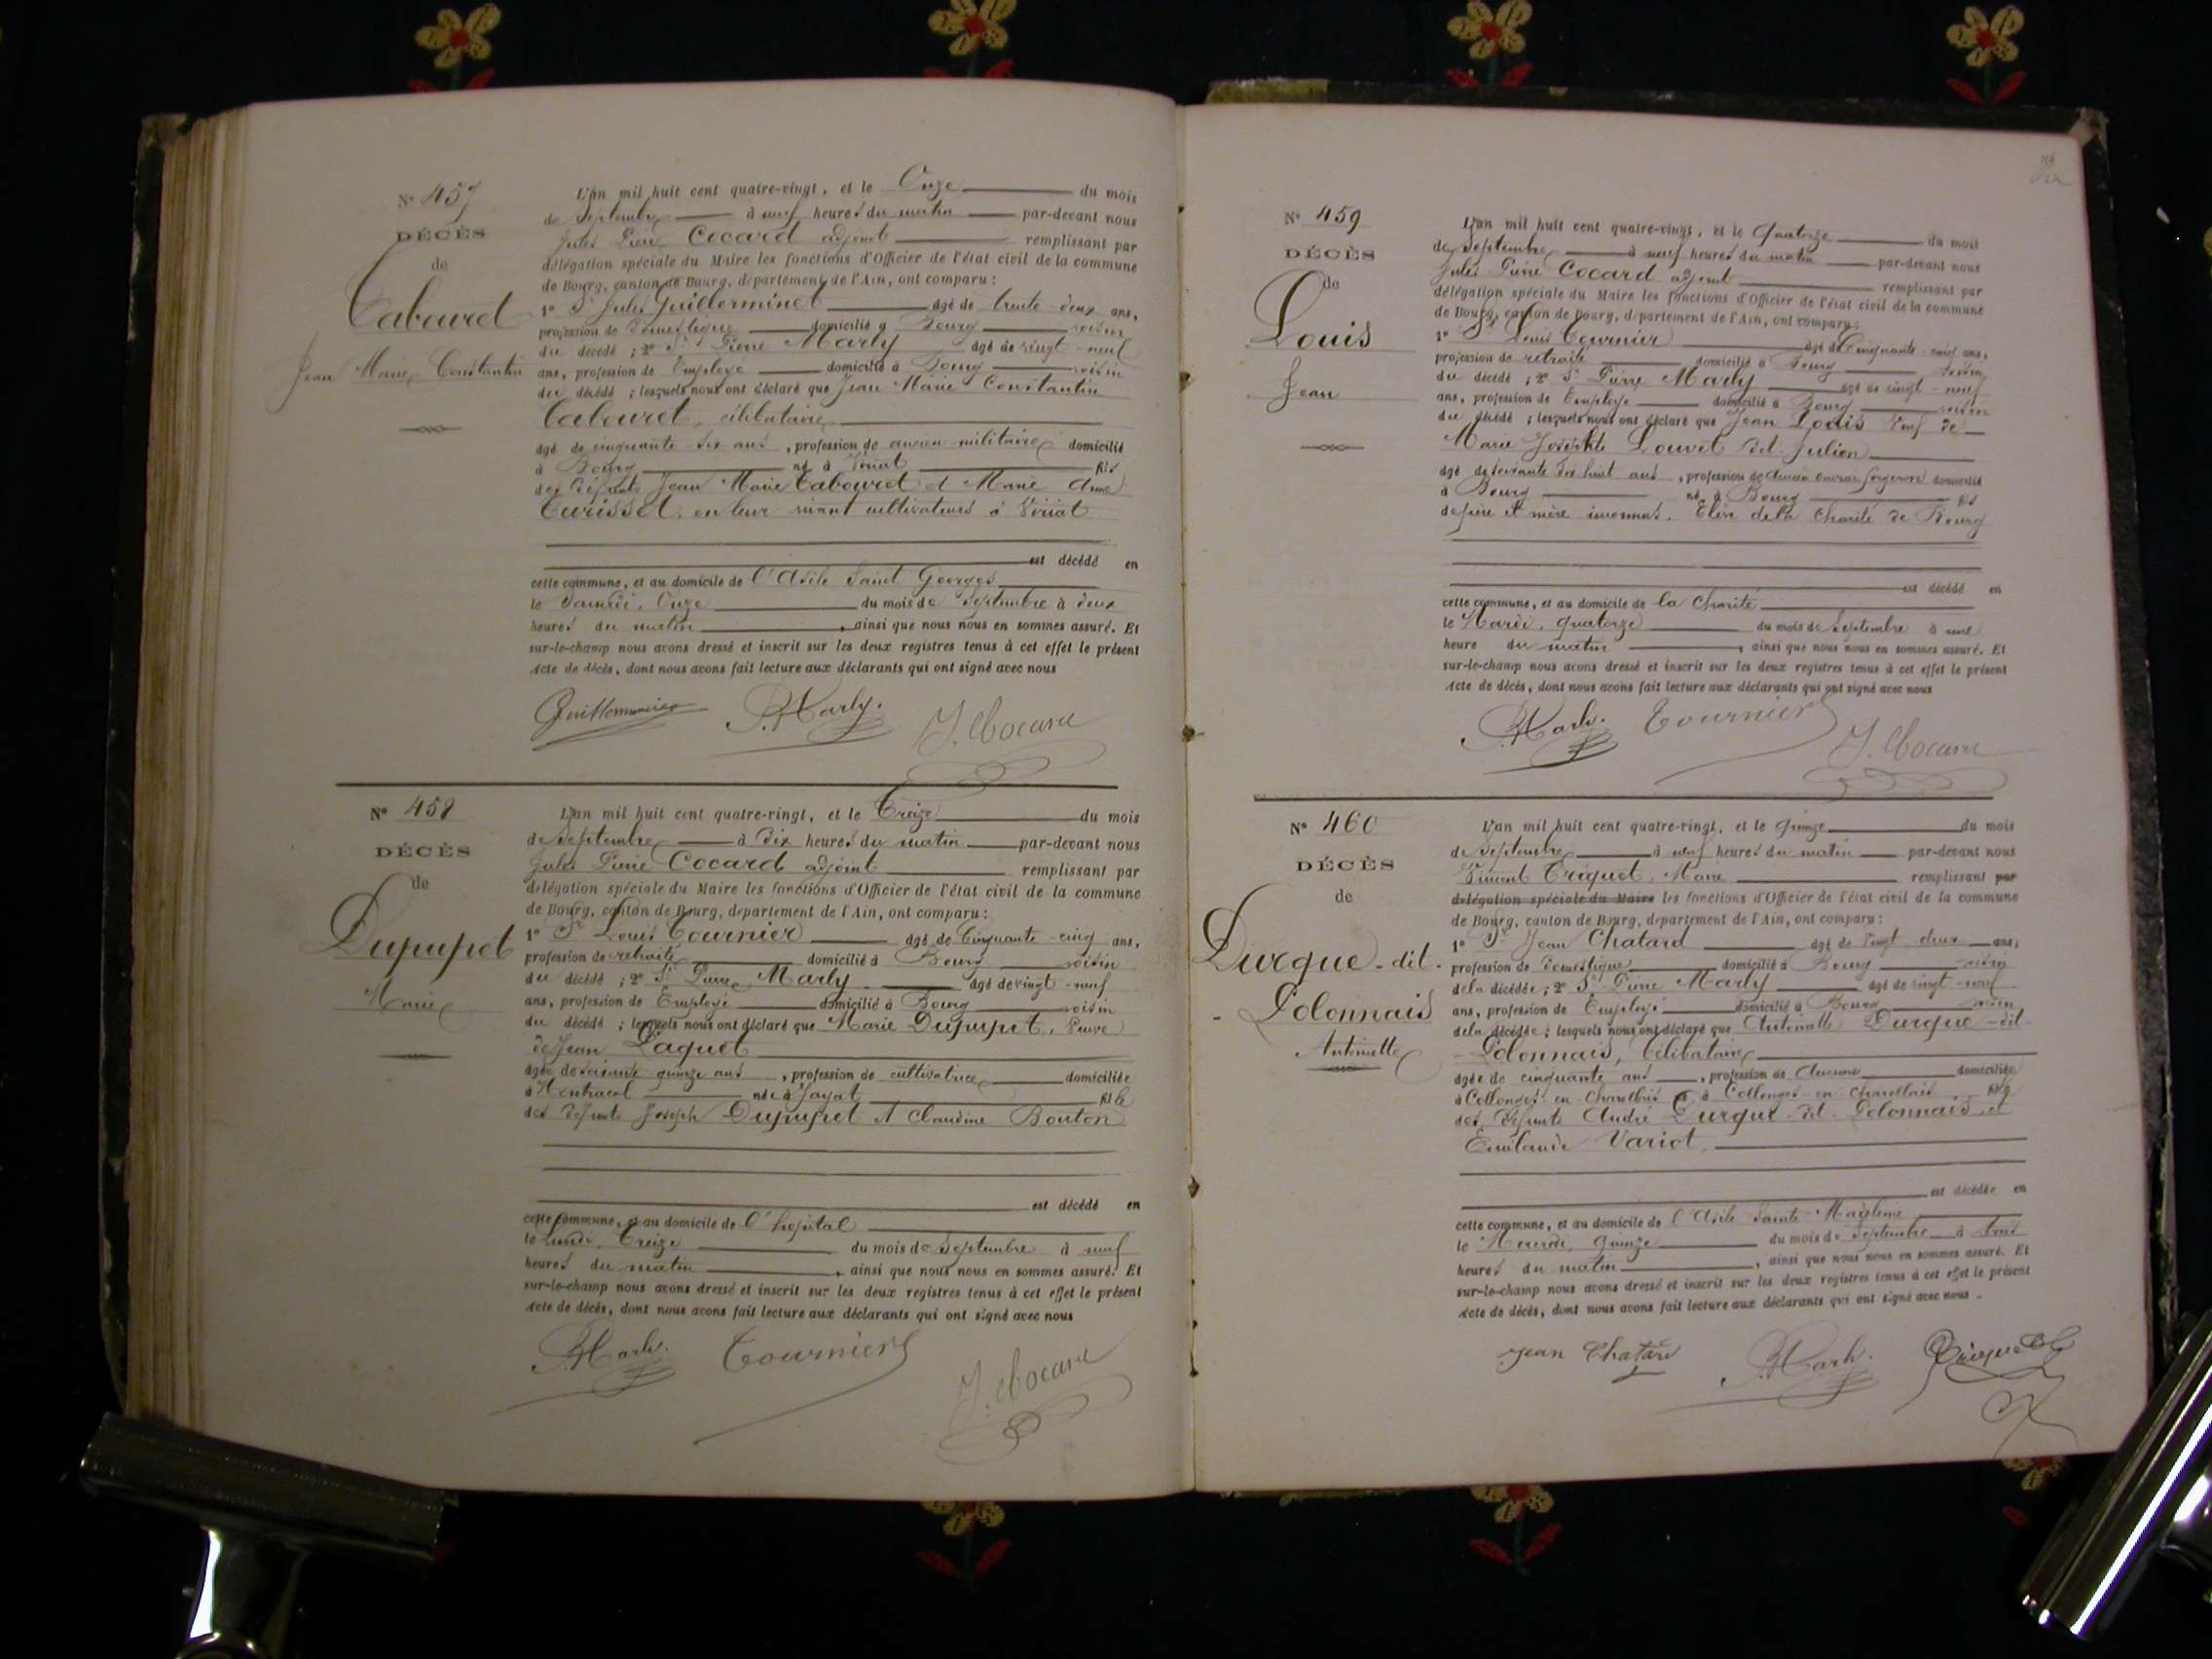 N° 457
DÉCÈS
de
Tabouret
Jean Marie Constantin
L'an mil huit cent quatre-vingt, et le Onze du mois
de Septembre à neuf heures du matin par-devant nous
Jules Pierre Cocard adjoint remplissant par
délégation spéciale du Maire les fonctions d'Officier de l'état civil de la commune
de Bourg, canton de Bourg, département de l'Ain, ont comparu :
1° Sr Jules Guillerminet âgé de trente-deux ans,
profession de Domestique domicilié à Bourg voisin
du décédé ; 2° Sr Pierre Marly âgé de vingt-neuf
ans, profession de Employé domicilié à Bourg voisin
du décédé ; lesquels nous ont déclaré que Jean Marie Constantin
Tabouret, célibataire
âgé de cinquante six ans, profession de ancien militaire domicilié
à Bourg né à Viriat fils
des défunts Jean Marie Tabouret et Marie Anne
Curisset, en leur vivant cultivateurs à Viriat
est décédé en
cette commune, et au domicile de l'Asile Saint Georges
le Samedi, Onze du mois de Septembre à deux
heures du matin, ainsi que nous nous en sommes assuré. Et
sur-le-champ nous avons dressé et inscrit sur les deux registres tenus à cet effet le présent
acte de décès, dont nous avons fait lecture aux déclarants qui ont signé avec nous
Guillerminet P. Marly. J. Cocard
N° 458
DÉCÈS
de
Dupupet
Marie
L'an mil huit cent quatre-vingt, et le Treize du mois
de Septembre à dix heures du matin par-devant nous
Jules Pierre Cocard adjoint remplissant par
délégation spéciale du Maire les fonctions d'Officier de l'état civil de la commune
de Bourg, canton de Bourg, département de l'Ain, ont comparu :
1° Sr Louis Tournier âgé de Cinquante-cinq ans,
profession de retraité domicilié à Bourg voisin
du décédé ; 2° Sr Pierre Marly âgé de vingt-neuf
ans, profession de Employé domicilié à Bourg voisin
du décédé ; lesquels nous ont déclaré que Marie Dupupet, Veuve
de Jean Paquet
âgée de soixante quinze ans, profession de cultivatrice domiciliée
à Montracol née à Jayat fille
des défunts Joseph Dupupet et Claudine Bouton
est décédé en
cette commune, et au domicile de l'hopital
le Lundi, Treize du mois de Septembre à neuf
heures du matin, ainsi que nous nous en sommes assuré. Et
sur-le-champ nous avons dressé et inscrit sur les deux registres tenus à cet effet le présent
acte de décès, dont nous avons fait lecture aux déclarants qui ont signé avec nous
P. Marly. Tournier J. Cocard
N° 459
DÉCÈS
de
Louis
Jean
L'an mil huit cent quatre-vingt, et le Quatorze du mois
de Septembre à neuf heures du matin par-devant nous
Jules Pierre Cocard adjoint remplissant par
délégation spéciale du Maire les fonctions d'Officier de l'état civil de la commune
de Bourg, canton de Bourg, département de l'Ain, ont comparu :
1° Sr Louis Tournier âgé de Cinquante-cinq ans,
profession de retraité domicilié à Bourg voisin
du décédé ; 2° Sr Pierre Marly âgé de vingt-neuf
ans, profession de Employé domicilié à Bourg voisin
du décédé ; lesquels nous ont déclaré que Jean Louis Veuf de
Marie Josephte Louvet dit Julien
âgé de soixante dix huit ans, profession de ancien ouvrier forgeron domicilié
à Bourg né à Bourg fils
de père et mère inconnus. Elève de la Charité de Bourg
est décédé en
cette commune, et au domicile de la Charité
le Mardi, quatorze du mois de Septembre à une
heure du matin, ainsi que nous nous en sommes assuré. Et
sur-le-champ nous avons dressé et inscrit sur les deux registres tenus à cet effet le présent
acte de décès, dont nous avons fait lecture aux déclarants qui ont signé avec nous
P. Marly. Tournier J. Cocard
N° 460
DÉCÈS
de
Durque-dit-
-Polonnais
Antoinette
L'an mil huit cent quatre-vingt, et le quinze du mois
de Septembre à neuf heures du matin par-devant nous
Vincent Triquet, Maire remplissant par
délégation spéciale du Maire les fonctions d'Officier de l'état civil de la commune
de Bourg, canton de Bourg, département de l'Ain, ont comparu :
1° Sr Jean Chatard âgé de Vingt-deux ans,
profession de Domestique domicilié à Bourg voisin
de la décédée ; 2° Sr Pierre Marly âgé de vingt-neuf
ans, profession de Employé domicilié à Bourg voisin
de la décédée ; lesquels nous ont déclaré que Antoinette Durque-dit-
-Polonnais, Célibataire
âgée de cinquante ans, profession de Aucune domiciliée
à Collonges-en-Charollais à Collonges-en-Charollais fille
des défunts André Durque-dit-Polonnais et
Emilande Variot
est décédée en
cette commune, et au domicile de l'Asile Sainte Madeleine
le Mercredi, quinze du mois de Septembre à trois
heures du matin, ainsi que nous nous en sommes assuré. Et
sur-le-champ nous avons dressé et inscrit sur les deux registres tenus à cet effet le présent
acte de décès, dont nous avons fait lecture aux déclarants qui ont signé avec nous.
Jean Chatard P. Marly. Triquet